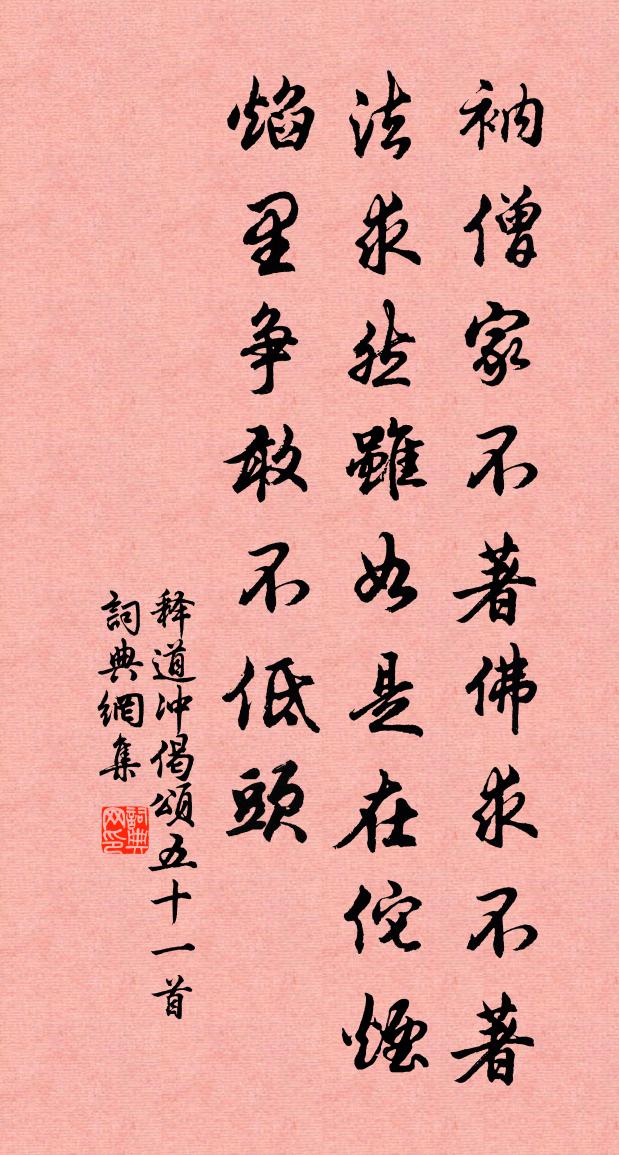 衲僧家不著佛求不著
法求然雖如是在佗煙
焰里争敢不低頭
释道冲偈頌五十一首
詞典網集
詞典网印